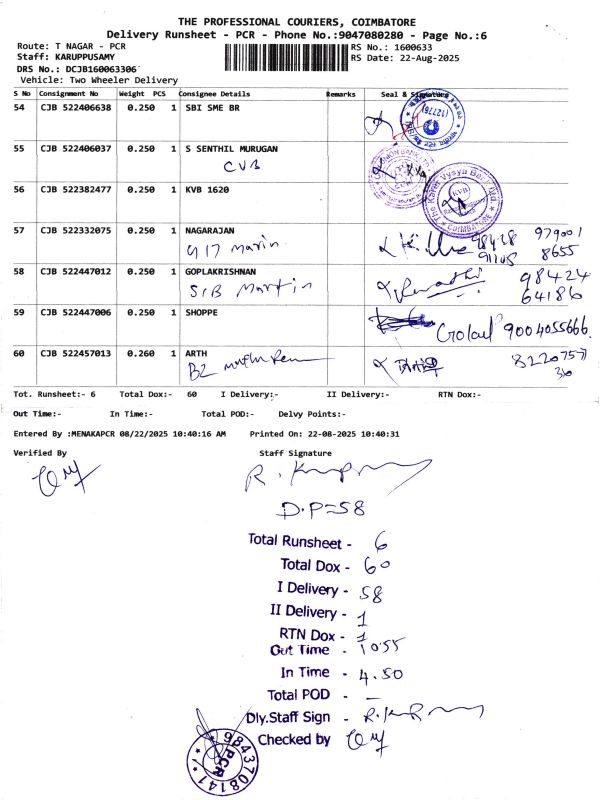 THE PROFESSIONAL COURIERS, COIMBATORE
Delivery Runsheet - PCR - Phone No.:9047080280 - Page No.:6
Route: T NAGAR - PCR RS No.: 1600633
Staff: KARUPPUSAMY RS Date: 22-Aug-2025
DRS No.: DCJB160063306
Vehicle: Two Wheeler Delivery
S No Consignment No Weight PCS Consignee Details Remarks Seal & Signature
54 CJB 522406638 0.250 1 SBI SME BR
55 CJB 522406037 0.250 1 S SENTHIL MURUGAN
CVB
56 CJB 522382477 0.250 1 KVB 1620
The Karur Vysya Bank Ltd.
KVB
COIMBATORE
57 CJB 522332075 0.250 1 NAGARAJAN
G17 Marin 98428 979001
91108 8655
58 CJB 522447012 0.250 1 GOPLAKRISHNAN
S1B Martin 98424
64186
59 CJB 522447006 0.250 1 SHOPPE
9004055666
60 CJB 522457013 0.260 1 ARTH
B2 8220757
36
Tot. Runsheet:- 6 Total Dox:- 60 I Delivery:- II Delivery:- RTN Dox:-
Out Time:- In Time:- Total POD:- Delvy Points:-
Entered By :MENAKAPCR 08/22/2025 10:40:16 AM Printed On: 22-08-2025 10:40:31
Verified By Staff Signature
D.P=58
Total Runsheet - 6
Total Dox - 60
I Delivery - 58
II Delivery - 1
RTN Dox - 1
Out Time - 1055
In Time - 4.50
Total POD - —
Dly.Staff Sign -
Checked by
9843708141
PCR